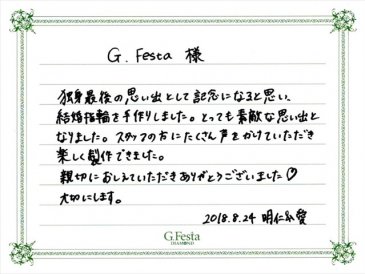 G. Festa 様
独身最後の思い出として記念になると思い、
結婚指輪を手作りしました。とっても素敵な思い出と
なりました。スタッフの方にたくさん声をかけていただき
楽しく製作できました。
親切におしえていただきありがとうございました♡
大切にします。
2018.8.24 明仁 愛
G.Festa
DIAMOND